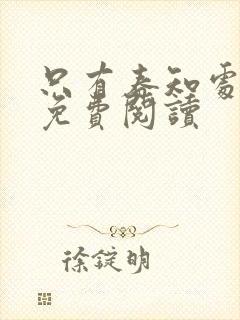 只有春知處
免費閱讀
徐錠明